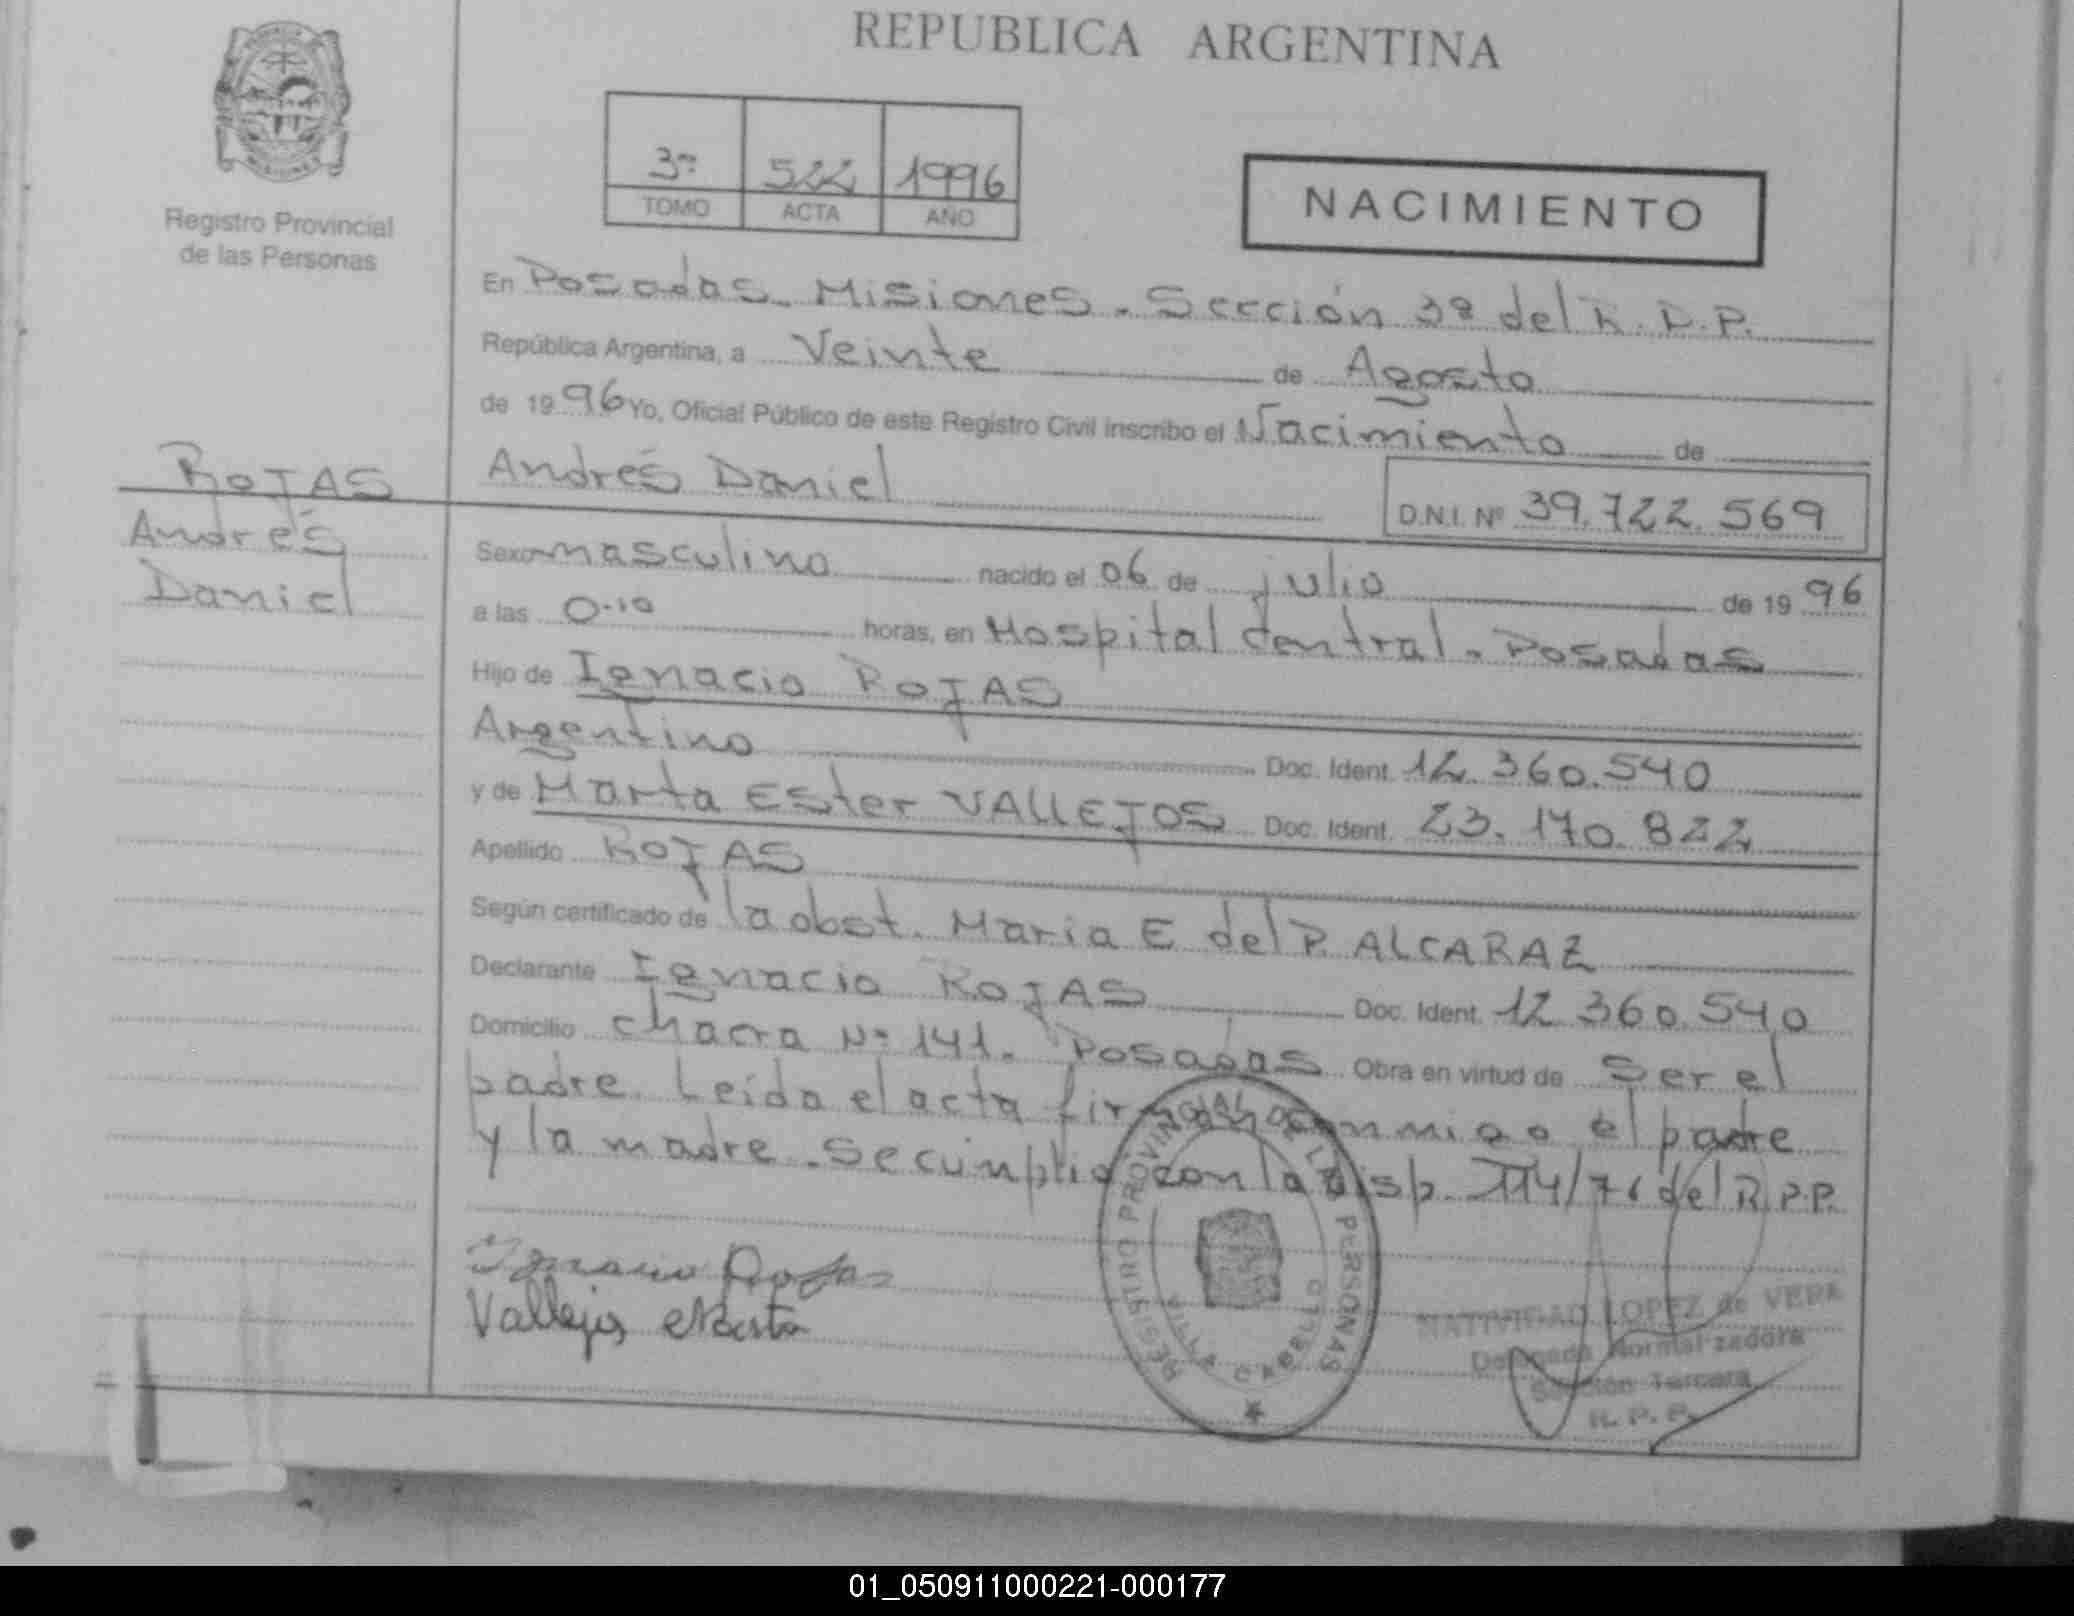 REPUBLICA ARGENTINA
Registro Provincial
de las Personas
3º 522 1996
TOMO ACTA AÑO
NACIMIENTO
En Posadas - Misiones - Sección 3ª del R.P.P.
República Argentina, a Veinte de Agosto
de 1996 Yo, Oficial Público de este Registro Civil inscribo el Nacimiento de
Andrés Daniel D.N.I. Nº 39.722.569
ROJAS
Andrés
Daniel
Sexo masculino nacido el 06 de julio de 1996
a las 0.10 horas, en Hospital Central - Posadas
Hijo de Ignacio ROJAS
Argentino Doc. Ident. 12.360.540
y de Marta Ester VALLEJOS Doc. Ident. 23.170.822
Apellido ROJAS
Según certificado de la obst. Maria E del P. ALCARAZ
Declarante Ignacio ROJAS Doc. Ident. 12.360.540
Domicilio Chacra Nº 141 - Posadas Obra en virtud de Ser el
padre. Leída el acta firman conmigo el padre
y la madre - Se cumplio con la disp. 114/76 del R.P.P.
Ignacio Rojas
Vallejos Marta
REGISTRO PROVINCIAL DE LAS PERSONAS
VILLA CABELLO
NATIVIDAD LOPEZ de VERA
Delegada Normalizadora
Sección Tercera
R.P.P.
01_050911000221-000177